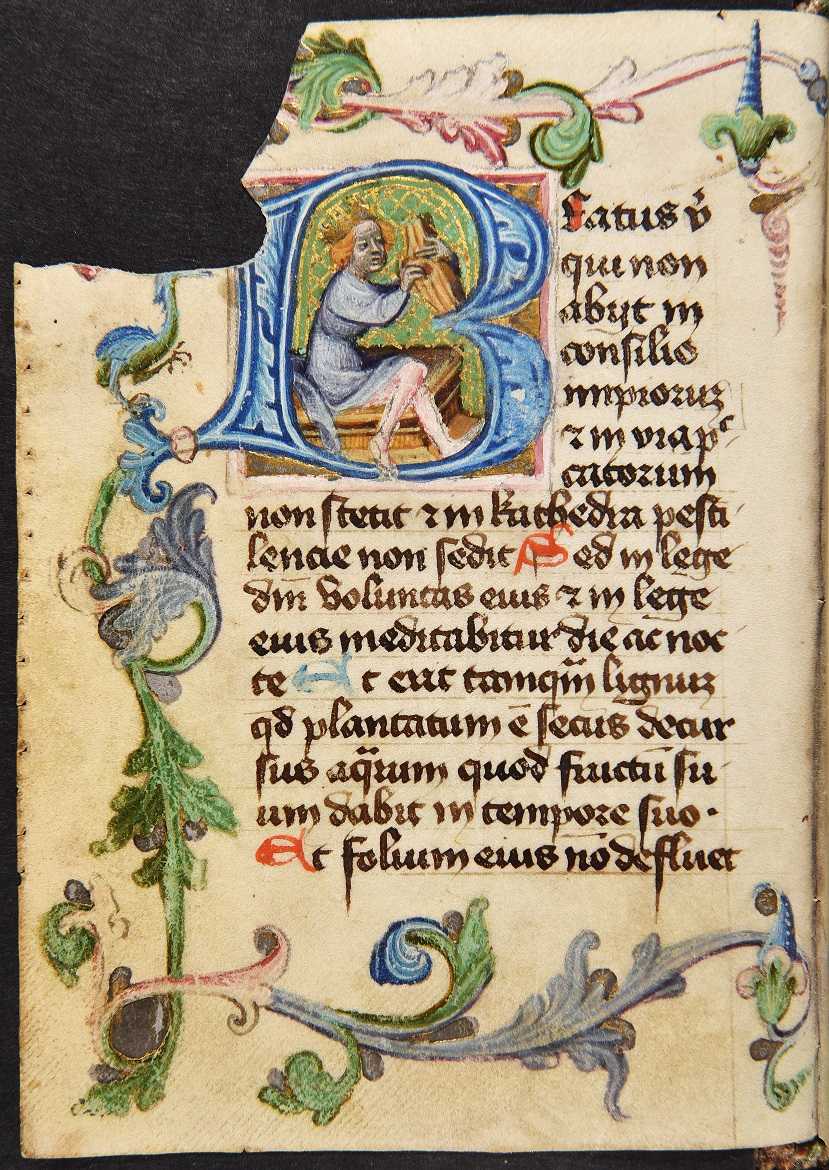 Beatus v̉
qui non
abijt in
cōnsilio
impioruꝫ
⁊ in via pᶜ
catorum
non stetit ⁊ in kathedra pesti
lencie non sedit Sed in lege
dn̄i voluntas eius ⁊ in lege
eius meditabitur die ac noc
te Et erit tamqm̄ lignuꝫ
qd̄ plantatum ē secus decur
sus aq̄rum quod fructū su
um dabit in tempore suo.
Et folium eius nō defluet